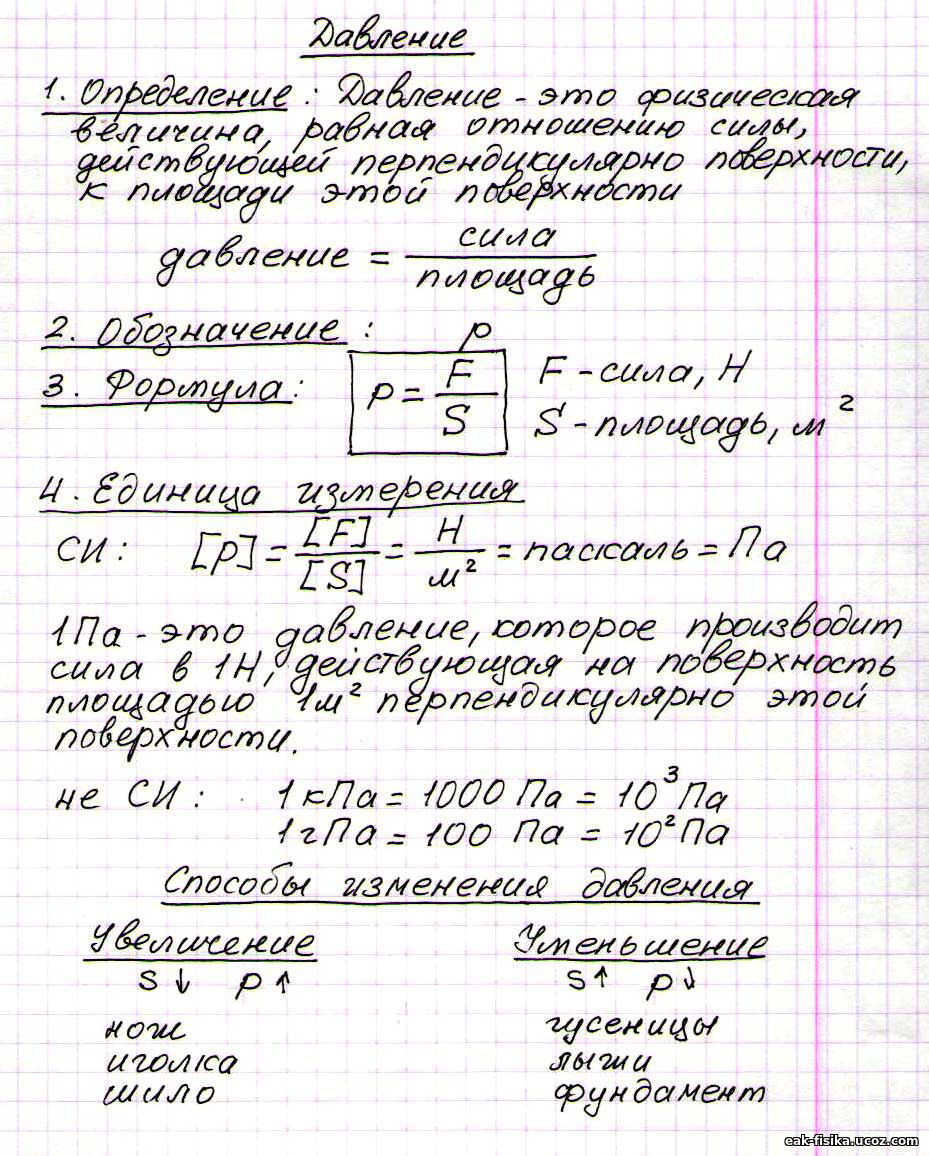 Давление
1. Определение: Давление - это физическая
величина, равная отношению силы,
действующей перпендикулярно поверхности,
к площади этой поверхности
давление = сила / площадь
2. Обозначение: p
3. Формула: p = F / S F - сила, Н
S - площадь, м²
4. Единица измерения
СИ: [p] = [F] / [S] = Н / м² = паскаль = Па
1 Па - это давление, которое производит
сила в 1Н, действующая на поверхность
площадью 1м² перпендикулярно этой
поверхности.
не СИ: 1 кПа = 1000 Па = 10³ Па
1 гПа = 100 Па = 10² Па
Способы изменения давления
Увеличение Уменьшение
S ↓ p ↑ S ↑ p ↓
нож гусеницы
иголка лыжи
шило фундамент
eak-fisika.ucoz.com